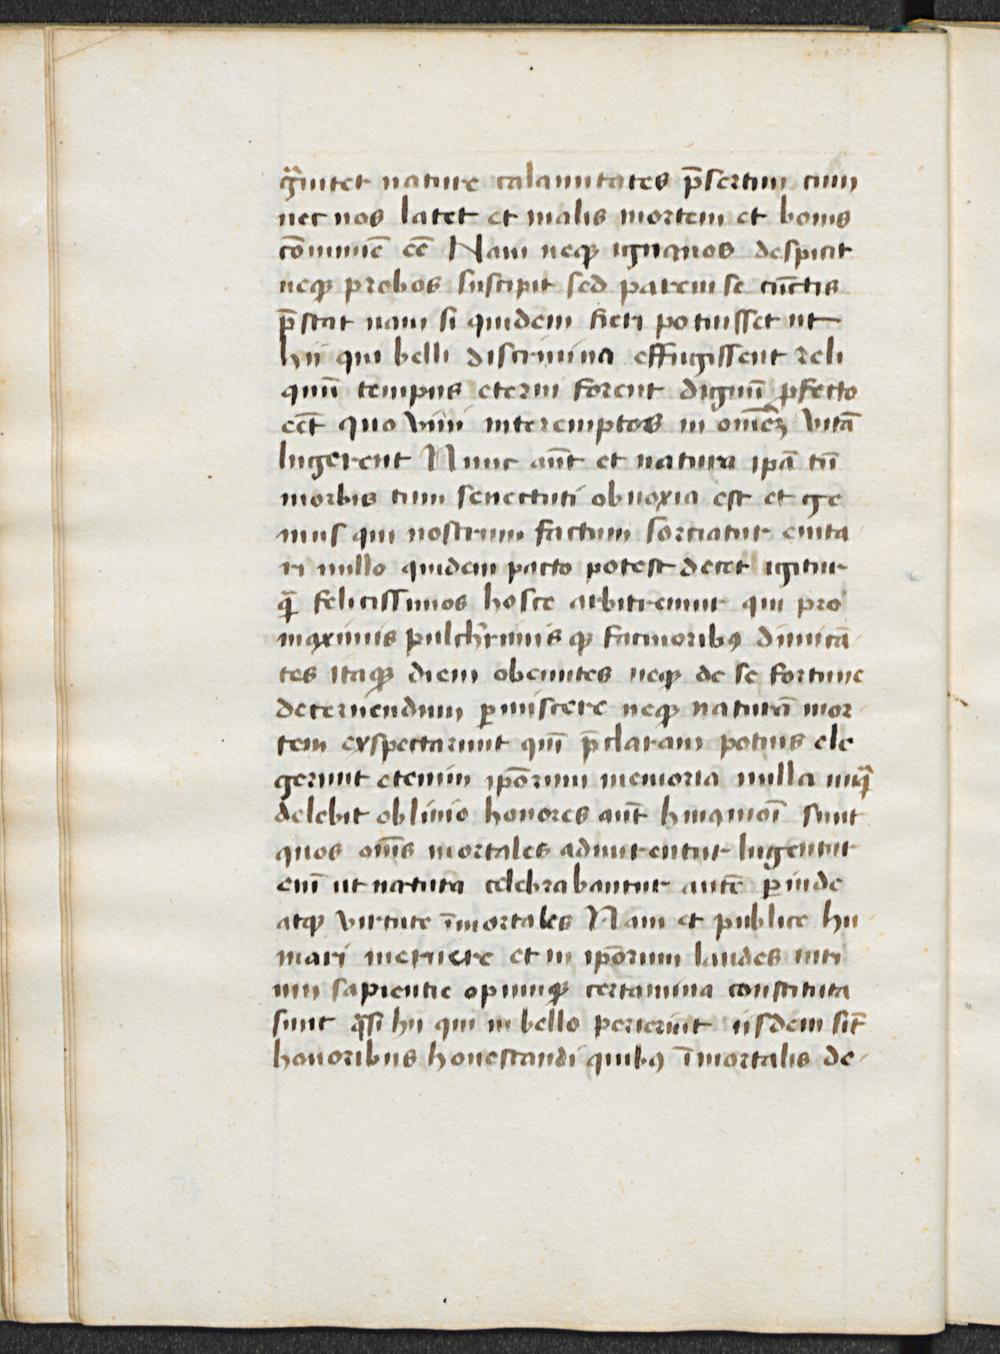 gͣuitet nature calamitates p̄sertim cum
nec nos latet et malis mortem et bonis
cōmunē eē Nam neqꝫ ignauos despicit
neqꝫ probos suscipit sed parem se cūctis
p̄stat nam si quidem fieri potuisset ut
hii qui belli discrimina effugissent reli
quū tempus eterni forent dignū ꝓfecto
eēt quo viui interemptos in omēꝫ vitā
lugerent Nunc aūt et natura ipā tū
morbis tum senectuti obnoxia est et ge
nius qui nostrum factum sortiatur euita
ri nullo quidem pacto potest decet igitur
qͣ felicissimos hosce arbitremur qui pro
maximis pulchrimis qꝫ facinoribꝰ dimicā
tes itaqꝫ diem obeuntes neqꝫ de se fortune
decernendum ꝑmiscere neqꝫ naturā mor
tem exspectarunt quī p̄claram potius ele
gerunt etenim ipōrum memoria nulla unqͣ
delebit obliuio honores aūt huiꝰmōi sunt
quos om̄s mortales admirentur lugentur
enī ut natura celebrabantur autē ꝑinde
atqꝫ virtute īmortales Nam et publice hu
mari meruere et in ipōrum laudes uiri
um sapientie opumqꝫ certamina constituta
sunt qͣsi hii qui in bello perierint iisdem sīt
honoribus honestandi quibꝰ īmortalis de